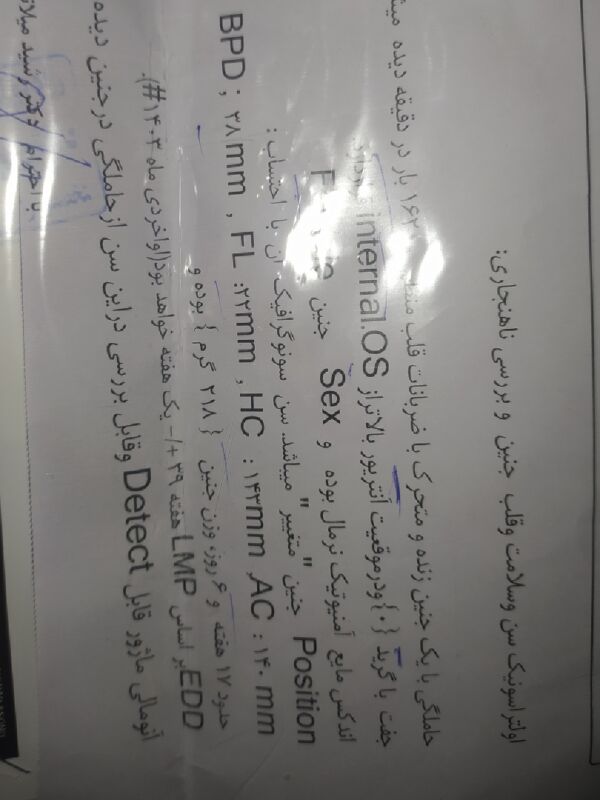 اولتراسونیک سن وسلامت وقلب جنین و بررسی ناهنجاری:
حاملگی با یک جنین زنده و متحرک با ضربانات قلب ۱۶۲ بار در دقیقه دیده
جفت با گرید {۰} ودرموقعیت آنتریور بالاتراز internal.OS قراردارد.
اندکس مایع آمنیوتیک نرمال بوده و Sex جنین
Position جنین "متغییر" میباشد. سن سونوگرافیک ان با احتساب :
BPD : ۳۸mm , FL :۲۲mm , HC : ۱۴۳mm ,AC : ۱۴۰ mm
حدود ۱۷ هفته و ۶ روزه وزن جنین { ۲۱۸ گرم } بوده و
EDDبر اساس LMP هفته ۳۹ +/- یک هفته خواهد بود(اواخردی ماه ۱۴۰۳#).
آنومالی ماژور قابل Detect وقابل بررسی دراین سن ازحاملگی درجنین دیده
با احترام دکتر